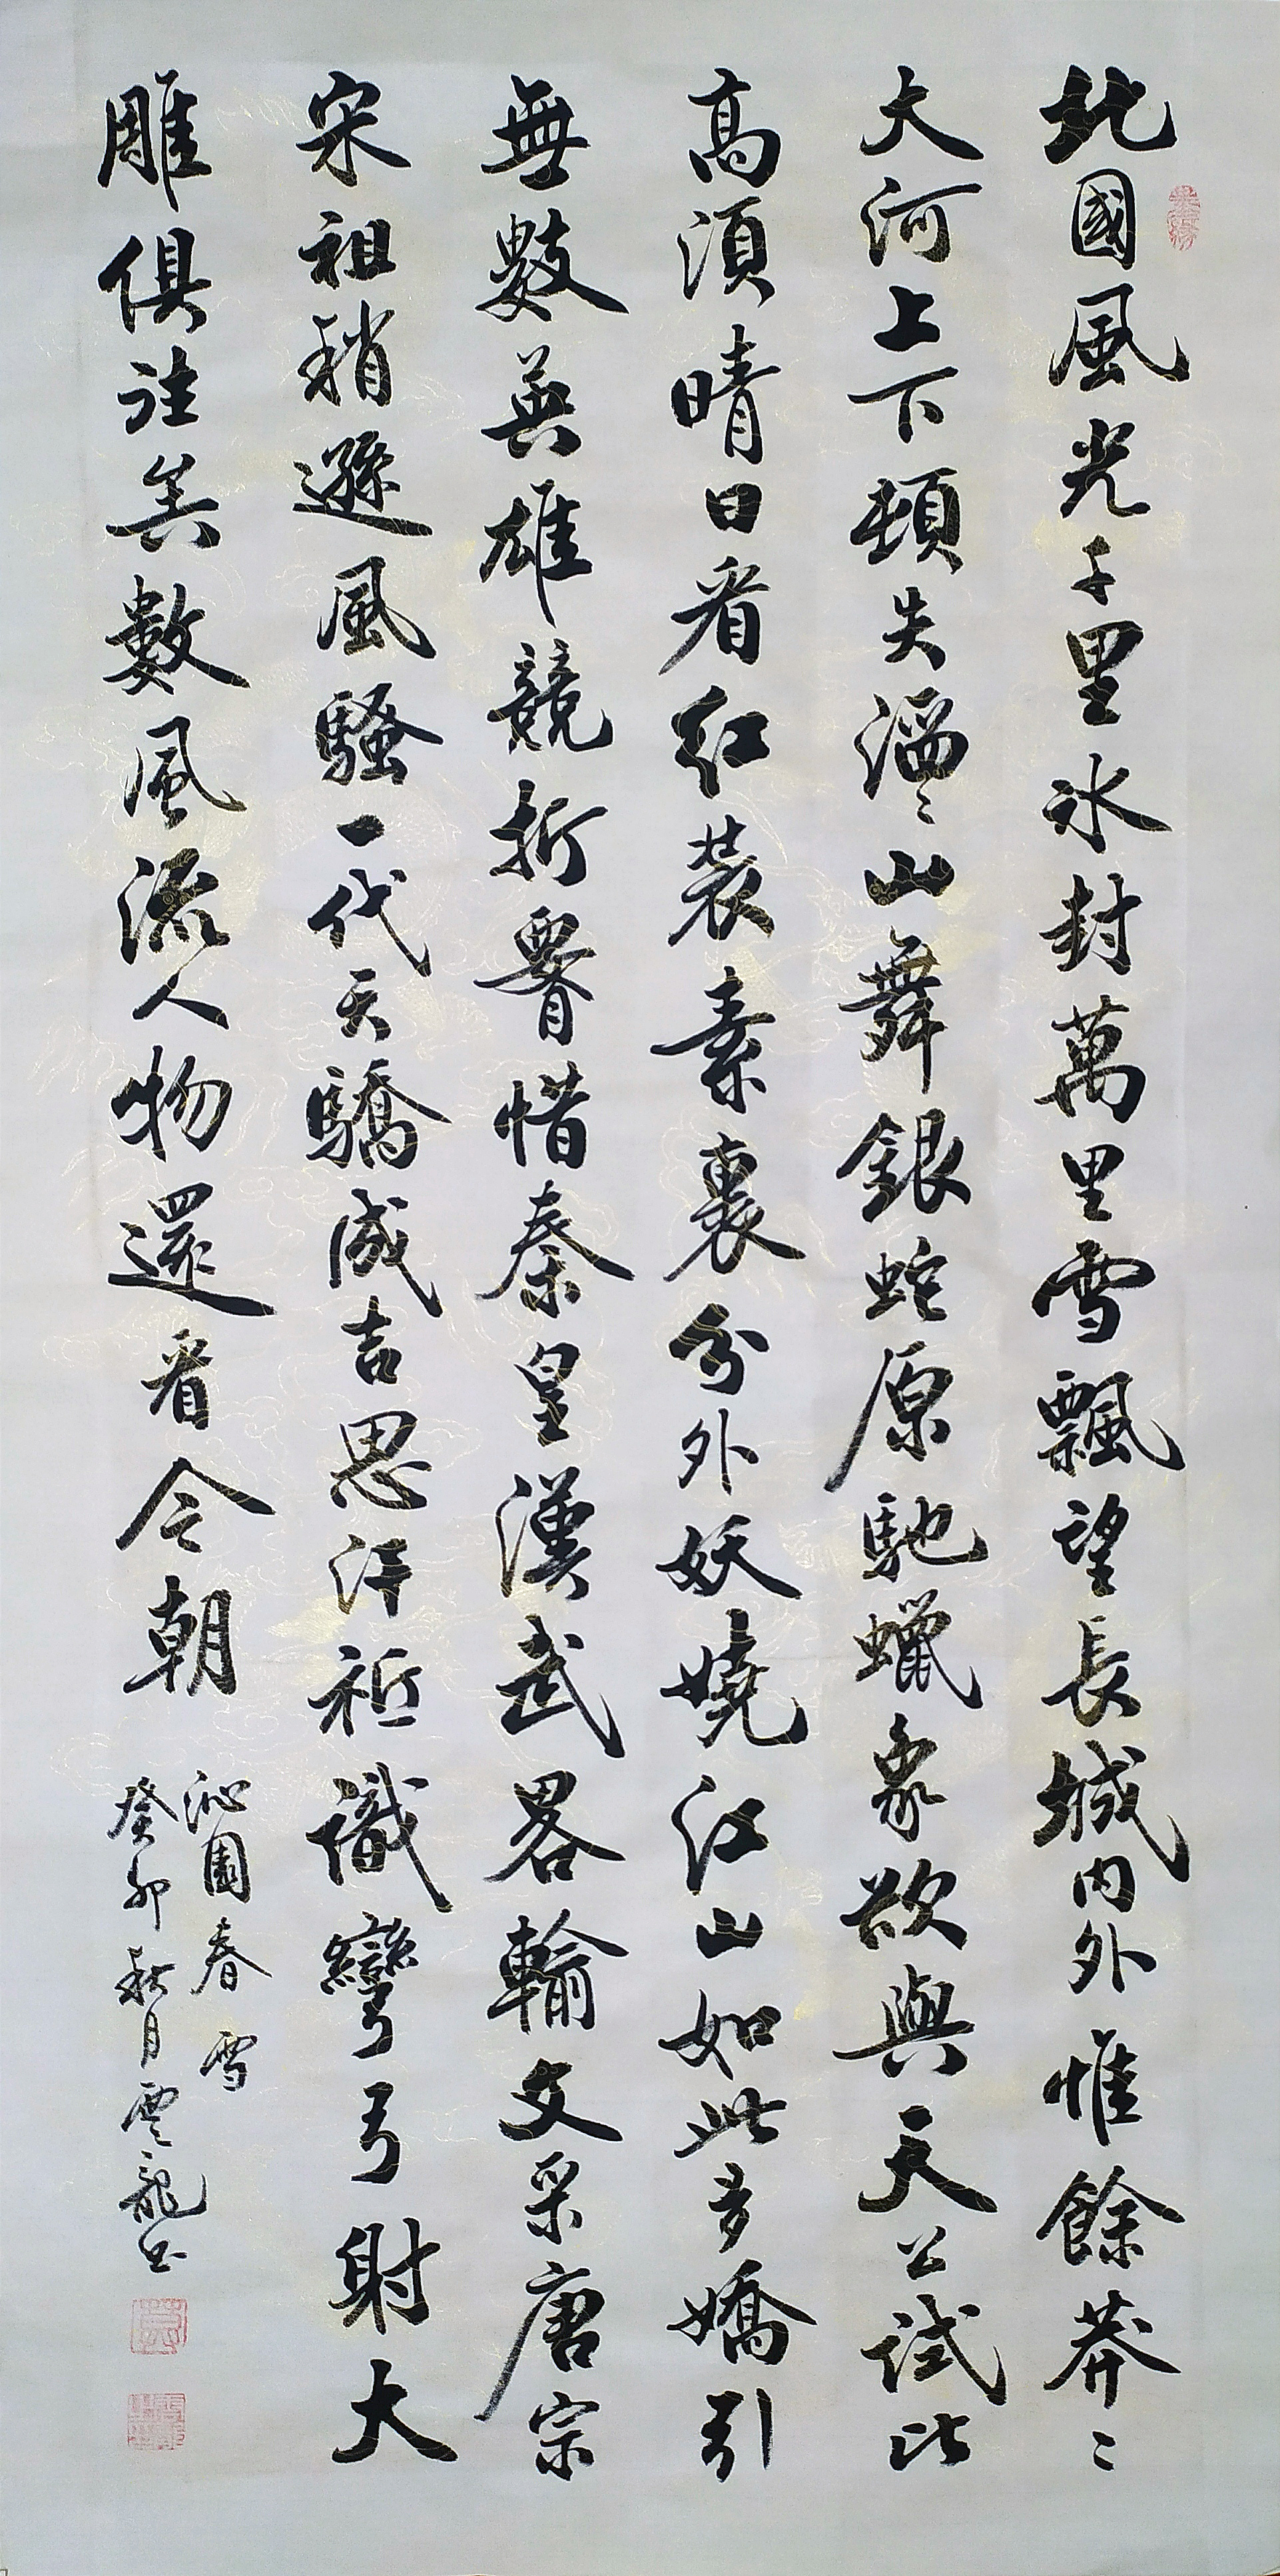 北國風光千里冰封萬里雪飄望長城内外惟餘莽〻
大河上下頓失滔〻山舞銀蛇原馳蠟象欲與天公試比
高須晴日看紅裝素裹分外妖嬈江山如此多嬌引
無數英雄競折腰惜秦皇漢武畧輸文采唐宗
宋祖稍遜風騷一代天驕成吉思汗祗識彎弓射大
雕俱往矣數風流人物還看今朝
沁園春 雪
癸卯秋月雲龍書